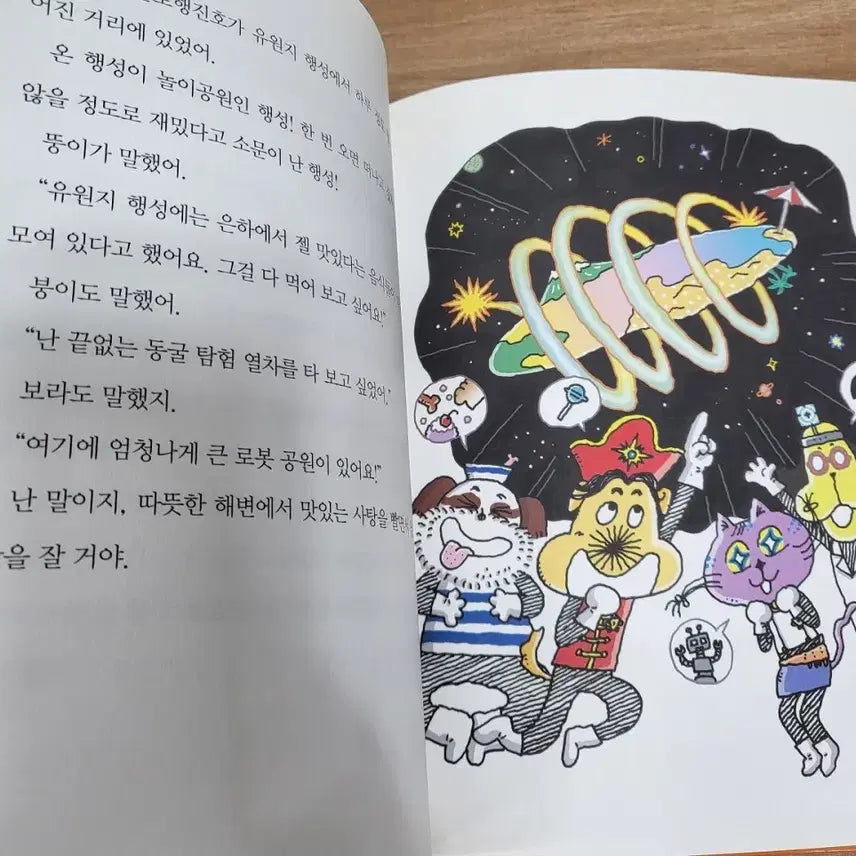 유원지 행성에서 하루
여진 거리에 있었어.
온 행성이 놀이공원인 행성! 한 번 오면
않을 정도로 재밌다고 소문이 난 행성!
뚱이가 말했어.
“유원지 행성에는 은하에서 젤 맛있다는
모여 있다고 했어요. 그걸 다 먹어 보고 싶어요!”
붕이도 말했어.
“난 끝없는 동굴 탐험 열차를 타 보고 싶었어.”
보라도 말했지.
“여기에 엄청나게 큰 로봇 공원이 있어요!”
난 말이지, 따뜻한 해변에서 맛있는 사탕을
잘 거야.